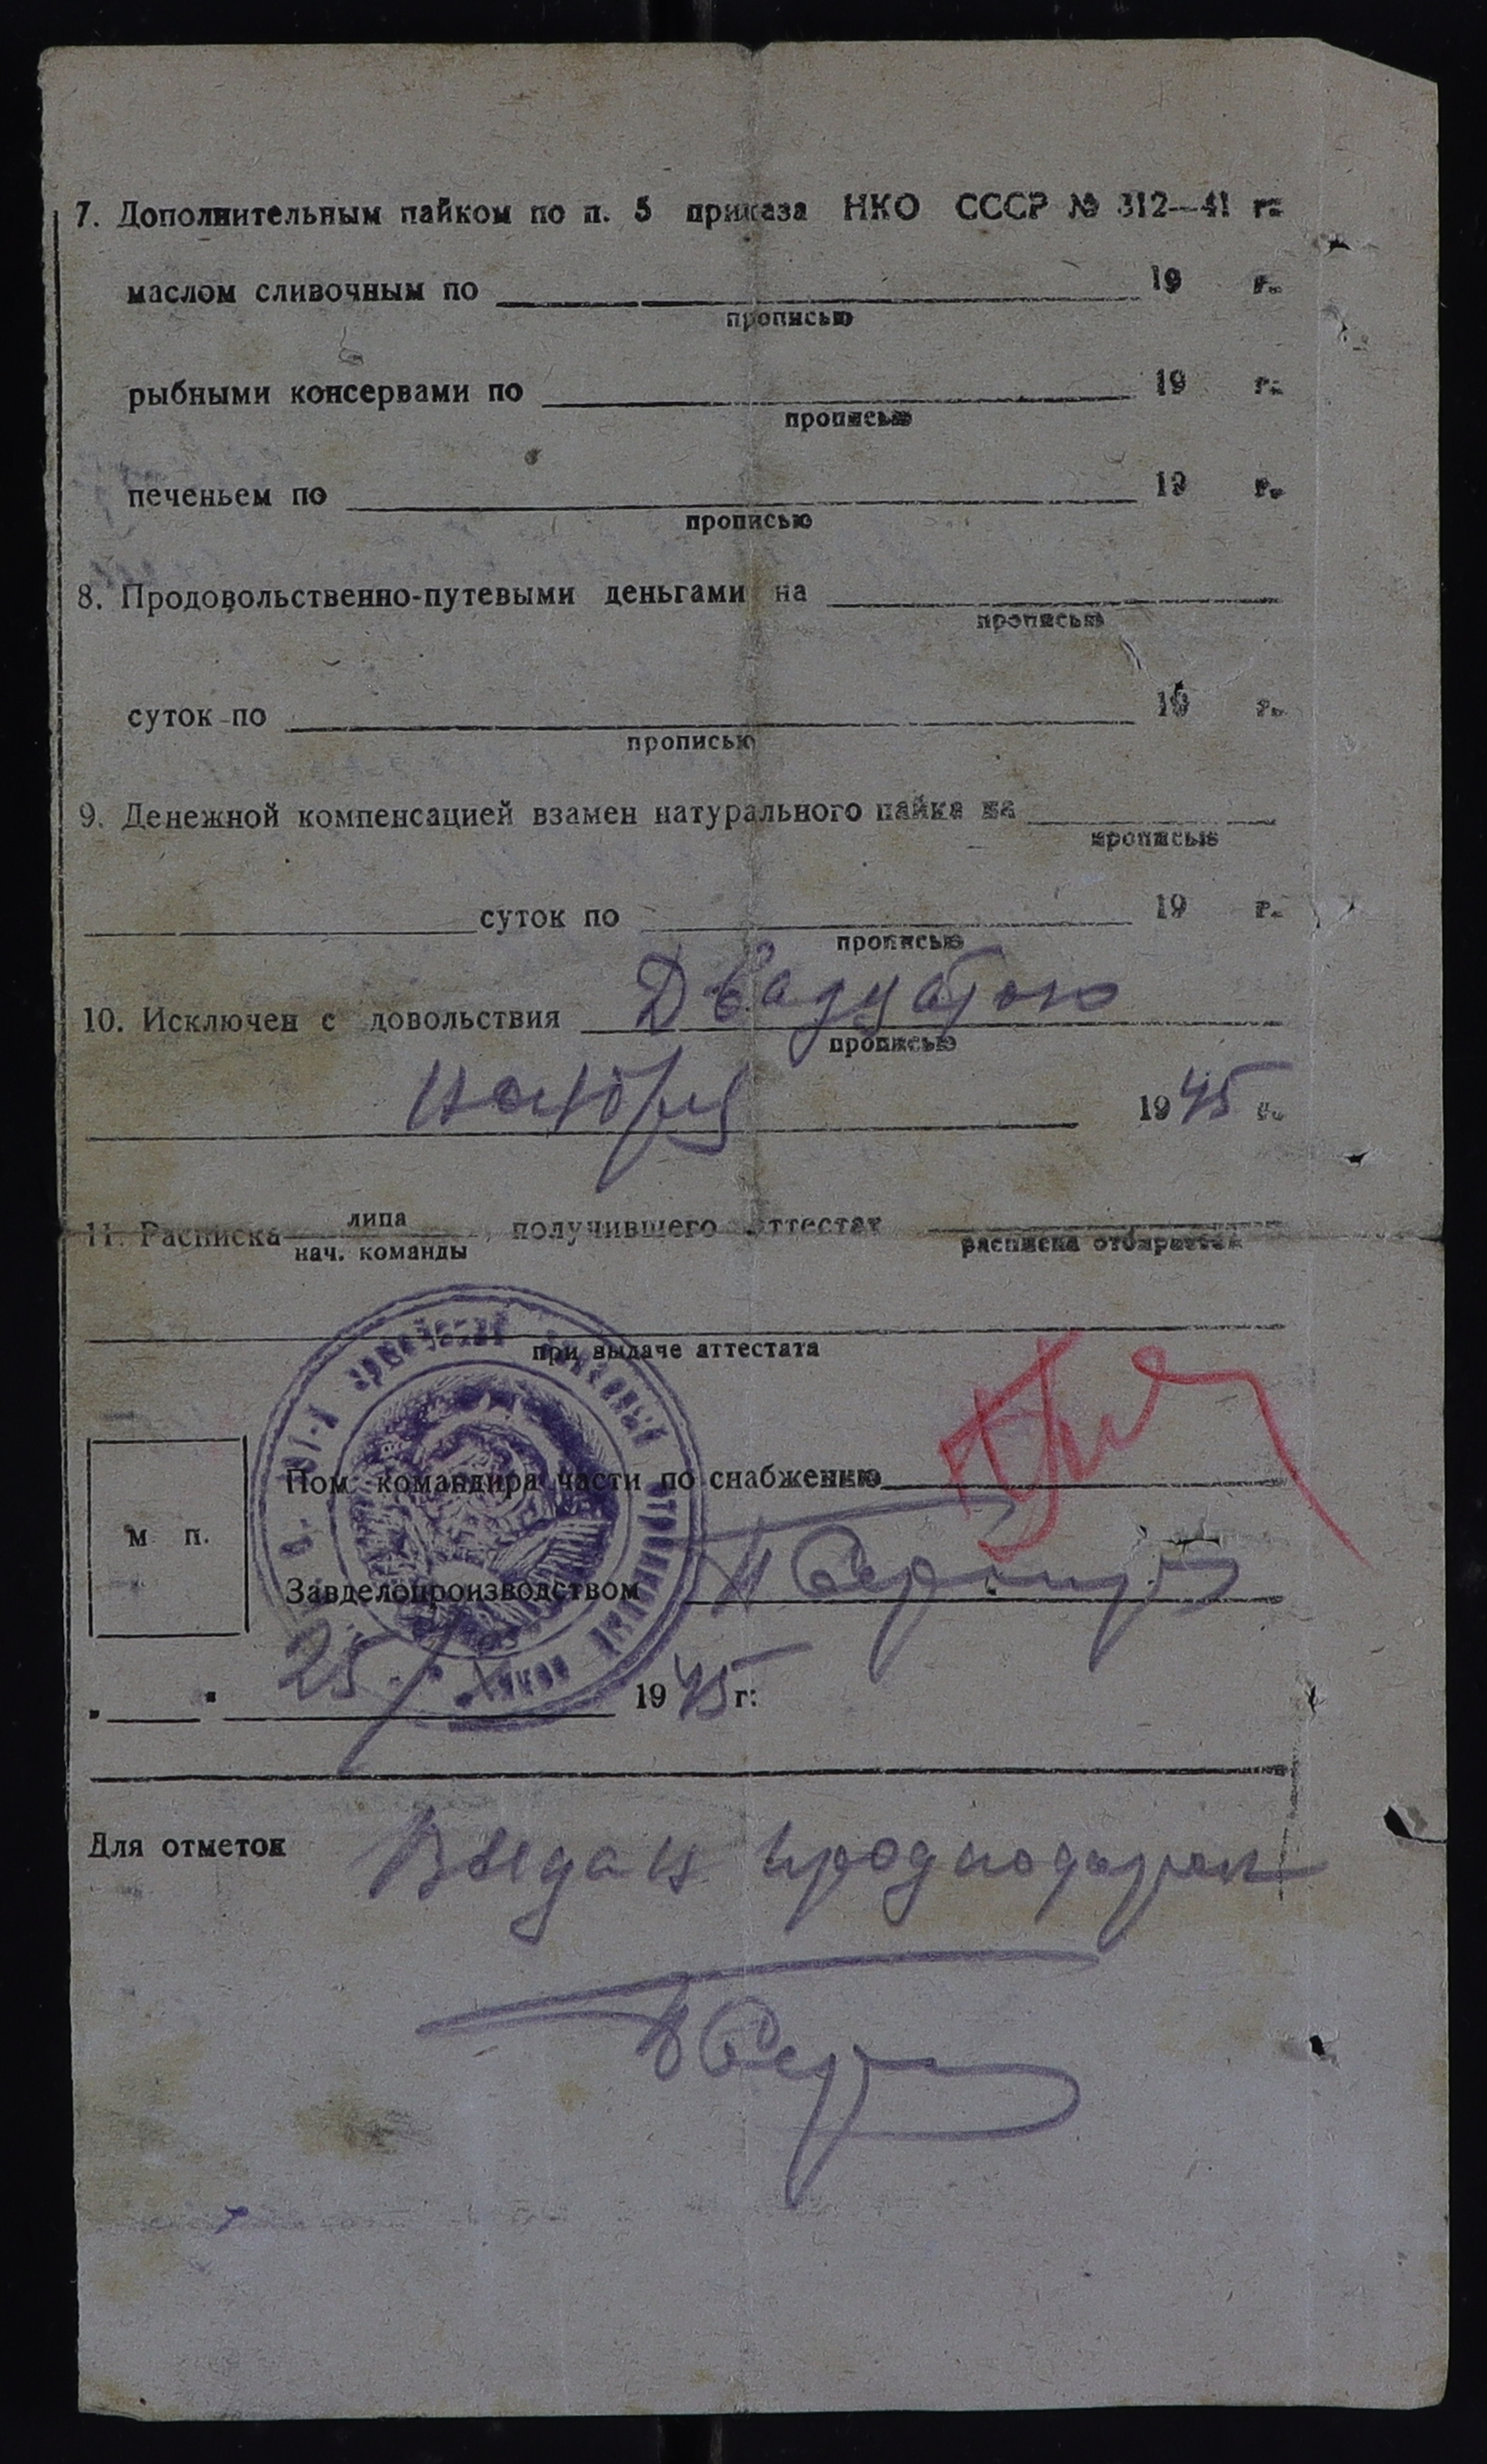 7. Дополнительным пайком по п. 5 приказа НКО СССР № 312—41 г.
маслом сливочным по 19 г.
прописью
рыбными консервами по 19 г.
прописью
печеньем по 19 г.
прописью
8. Продовольственно-путевыми деньгами на
прописью
суток по 19 г.
прописью
9. Денежной компенсацией взамен натурального пайка на
прописью
суток по 19 г.
прописью
10. Исключен с довольствия Двадцатого
прописью
ноября 1945 г.
11. Расписка лица , получившего аттестат
нач. команды расписка отбирается
при выдаче аттестата
Пом. командира части по снабжению
м п.
Завделопроизводством
" " 25/ 1945 г.
Для отметок Выдан продподарок